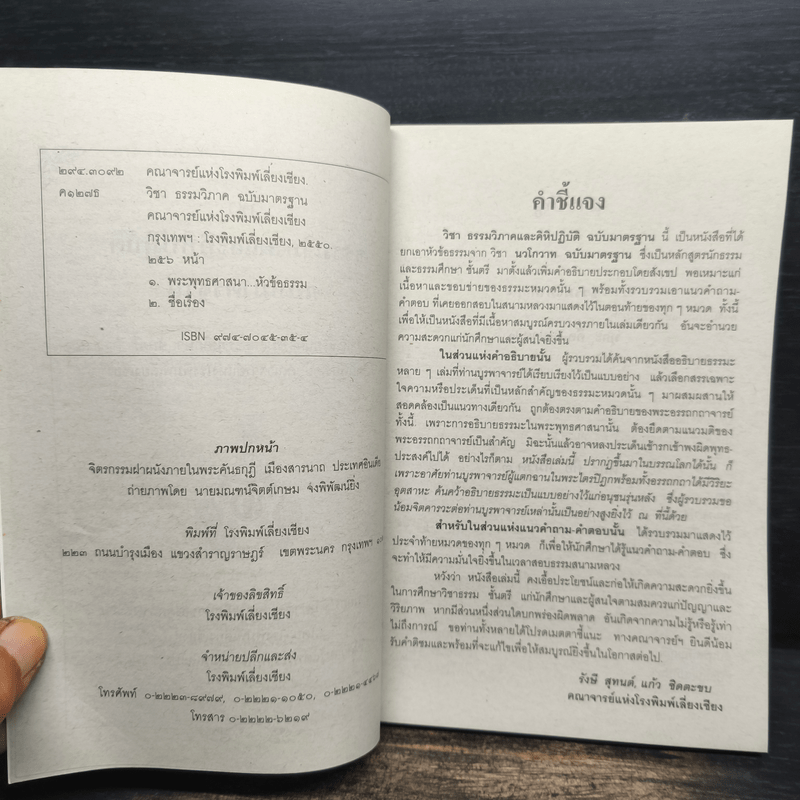 ๒๙๔.๓๐๙๒ คณาจารย์แห่งโรงพิมพ์เลี่ยงเชียง.
ค๑๒๗ธ วิชา ธรรมวิภาค ฉบับมาตรฐาน
คณาจารย์แห่งโรงพิมพ์เลี่ยงเชียง
กรุงเทพฯ : โรงพิมพ์เลี่ยงเชียง, ๒๕๕๐.
๒๕๖ หน้า
๑. พระพุทธศาสนา...หัวข้อธรรม.
๒. ชื่อเรื่อง
ISBN ๙๗๔-๗๐๔๕-๓๕-๔
ภาพปกหน้า
จิตรกรรมฝาผนังภายในพระคันธกุฎี เมืองสารนาถ ประเทศอินเดีย
ถ่ายภาพโดย นายมณฑน์จิตต์เกษม จงพิพัฒน์ยิ่ง
พิมพ์ที่ โรงพิมพ์เลี่ยงเชียง
๒๒๓ ถนนบำรุงเมือง แขวงสำราญราษฎร์ เขตพระนคร กรุงเทพฯ
เจ้าของลิขสิทธิ์
โรงพิมพ์เลี่ยงเชียง
จำหน่ายปลีกและส่ง
โรงพิมพ์เลี่ยงเชียง
โทรศัพท์ ๐-๒๒๒๓-๘๙๗๙, ๐-๒๒๒๑-๑๐๕๐, ๐-๒๒๒๑-๔๔๖๙
โทรสาร ๐-๒๒๒๒-๖๒๑๙
คำชี้แจง
วิชา ธรรมวิภาคและคิหิปฏิบัติ ฉบับมาตรฐาน นี้ เป็นหนังสือที่ได้
ยกเอาหัวข้อธรรมจาก วิชา นวโกวาท ฉบับมาตรฐาน ซึ่งเป็นหลักสูตรนักธรรม
และธรรมศึกษา ชั้นตรี มาตั้งแล้วเพิ่มคำอธิบายประกอบโดยสังเขป พอเหมาะแก่
เนื้อหาและขอบข่ายของธรรมะหมวดนั้น ๆ พร้อมทั้งรวบรวมเอาแนวคำถาม-
คำตอบ ที่เคยออกสอบในสนามหลวงมาแสดงไว้ในตอนท้ายของทุก ๆ หมวด ทั้งนี้
เพื่อให้เป็นหนังสือที่มีเนื้อหาสมบูรณ์ครบวงจรภายในเล่มเดียวกัน อันจะอำนวย
ความสะดวกแก่นักศึกษาและผู้สนใจยิ่งขึ้น
ในส่วนแห่งคำอธิบายนั้น ผู้รวบรวมได้ค้นจากหนังสืออธิบายธรรมะ
หลาย ๆ เล่มที่ท่านบูรพาจารย์ได้เรียบเรียงไว้เป็นแบบอย่าง แล้วเลือกสรรเฉพาะ
ใจความหรือประเด็นที่เป็นหลักสำคัญของธรรมะหมวดนั้น ๆ มาผสมผสานให้
สอดคล้องเป็นแนวทางเดียวกัน ถูกต้องตรงตามคำอธิบายของพระอรรถกถาจารย์
ทั้งนี้ เพราะการอธิบายธรรมะในพระพุทธศาสนานั้น ต้องยึดตามแนวมติของ
พระอรรถกถาจารย์เป็นสำคัญ มิฉะนั้นแล้วอาจหลงประเด็นเข้ารกเข้าพงผิดพุทธ-
ประสงค์ไปได้ อย่างไรก็ตาม หนังสือเล่มนี้ ปรากฏขึ้นมาในบรรณโลกได้นั้น ก็
เพราะอาศัยท่านบูรพาจารย์ผู้แตกฉานในพระไตรปิฎกพร้อมทั้งอรรถกถาได้มีวิริยะ
อุตสาหะ ค้นคว้าอธิบายธรรมะเป็นแบบอย่างไว้แก่อนุชนรุ่นหลัง ซึ่งผู้รวบรวมขอ
น้อมจิตคารวะต่อท่านบูรพาจารย์เหล่านั้นเป็นอย่างสูงยิ่งไว้ ณ ที่นี้ด้วย
สำหรับในส่วนแห่งแนวคำถาม-คำตอบนั้น ได้รวบรวมมาแสดงไว้
ประจำท้ายหมวดของทุก ๆ หมวด ก็เพื่อให้นักศึกษาได้รู้แนวคำถาม-คำตอบ ซึ่ง
จะทำให้มีความมั่นใจยิ่งขึ้นในเวลาสอบธรรมสนามหลวง
หวังว่า หนังสือเล่มนี้ คงเอื้อประโยชน์และก่อให้เกิดความสะดวกยิ่งขึ้น
ในการศึกษาวิชาธรรม ชั้นตรี แก่นักศึกษาและผู้สนใจตามสมควรแก่ปัญญาและ
วิริยภาพ หากมีส่วนหนึ่งส่วนใดบกพร่องผิดพลาด อันเกิดจากความไม่รู้หรือรู้เท่า
ไม่ถึงการณ์ ขอท่านทั้งหลายได้โปรดเมตตาชี้แนะ ทางคณาจารย์ฯ ยินดีน้อม
รับคำติชมและพร้อมที่จะแก้ไขเพื่อให้สมบูรณ์ยิ่งขึ้นในโอกาสต่อไป.
รังษี สุทนต์, แก้ว ชิดตะขบ
คณาจารย์แห่งโรงพิมพ์เลี่ยงเชียง